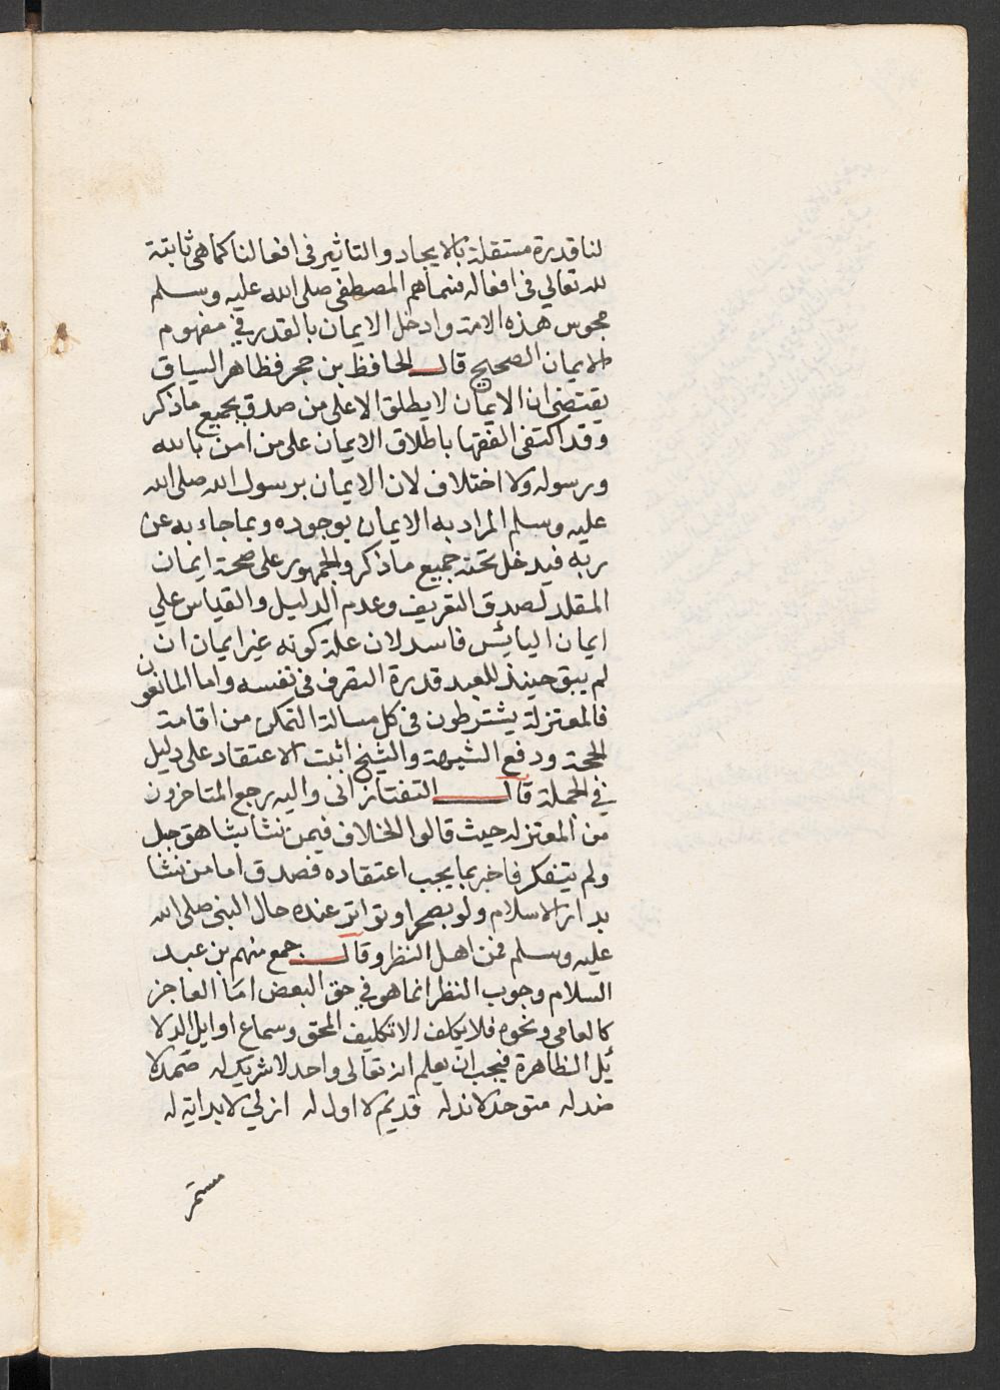 لنا قدرة مستقلة بالايجاد والتاثير في افعالنا كما هي ثابتة
لله تعالي في افعاله فسماهم المصطفى صلى الله عليه وسلم
مجوس هذه الامة وادخل الايمان بالقدر في مفهوم
الايمان الصحيح قال الحافظ بن حجر فظاهر السياق
يقتضي ان الايمان لا يطلق الا على من صدق بجميع ما ذكر
وقد اكتفى الفقها باطلاق الايمان على من امن بالله
ورسوله ولا اختلاف لان الايمان برسول الله صلى الله
عليه وسلم المراد به الايمان بوجوده وبما جاء به عن
ربه فيدخل تحته جميع ما ذكر والجمهور على صحة ايمان
المقلد لصدق التعريف وعدم الدليل والقياس علي
ايمان اليائس فاسد لان علة كونه غير ايمان ان
لم يبق حينئذ للعبد قدرة التصرف في نفسه واما المانعون
فالمعتزلة يشترطون في كل مسالة التمكن من اقامة
الحجة ودفع الشبهة والشيخ اثبت الاعتقاد على دليل
في الجملة قال التفتازاني واليه رجع المتاخرون
من المعتزله حيث قالوا الخلاف فيمن نشا بشاهق جبل
ولم يتفكر فاخبر بما يجب اعتقاده فصدق اما من نشا
بدار الاسلام ولو بصحرا وتواتر عنده حال النبي صلى الله
عليه وسلم فمن اهل النظر وقال جمع منهم بن عبد
السلام وجوب النظر انما هو في حق البعض اما العاجز
كالعامي ونحوه فلا يكلف الا تكليف المحق وسماع اوايل الدلا
ئل الظاهرة فيجب ان يعلم انه تعالى واحد لا شريك له صمد لا
ضد له متوحد لا ند له قديم لا اول له ازلي لا بداية له
مستمر